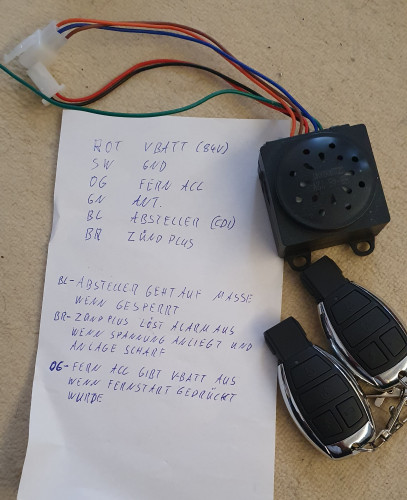 ROT VBATT (84V)
SW GND
OG FERN ACC
GN ANT.
BL ABSTELLER (CDI)
BR ZÜNDPLUS
BL- ABSTELLER GEHT AUF MASSE
WENN GESPERRT
BR- ZÜNDPLUS LÖST ALARM AUS
WENN SPANUNG ANLIEGT UND
ANLAGE SCHARF
OG- FERN ACC GIBT VBATT AUS
WENN FERNSTART GEDRÜCKT
WURDE